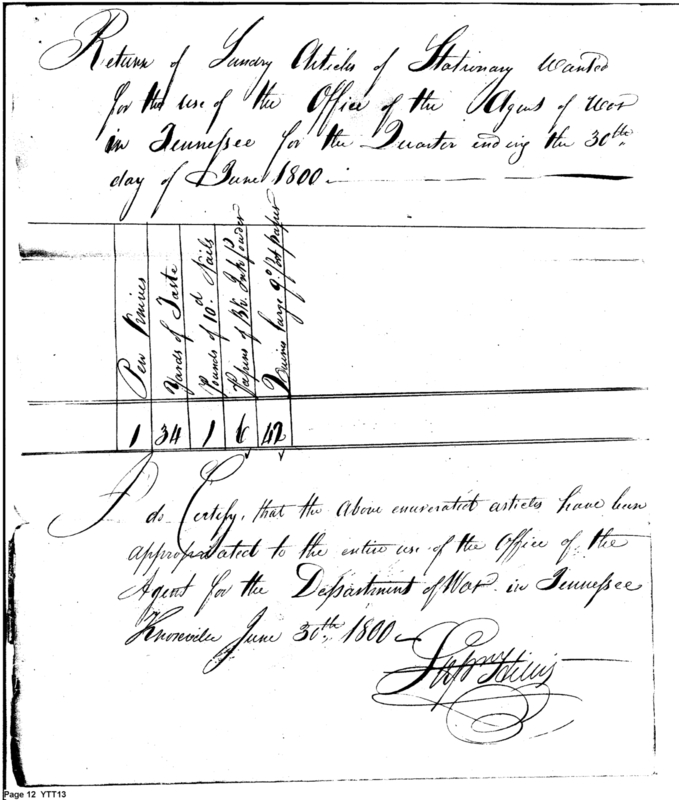 Return of Sundry Articles of Stationary Wanted
for the use of the Office of the Agent of War
in Tennessee for the Quarter ending the 30th
day of June 1800
Pen
Yards of Taste
Pounds of 10d. Nails
Papers of Blk. Ink Powder
Quires large 4o. Post paper
1 34 1 6 42
I do Certify, that the above enumerated articles have been
appropriated to the entire use of the Office of the
Agent for the Department of War in Tennessee
Knoxville June 30th, 1800
Hillis
Page 12 YTT13